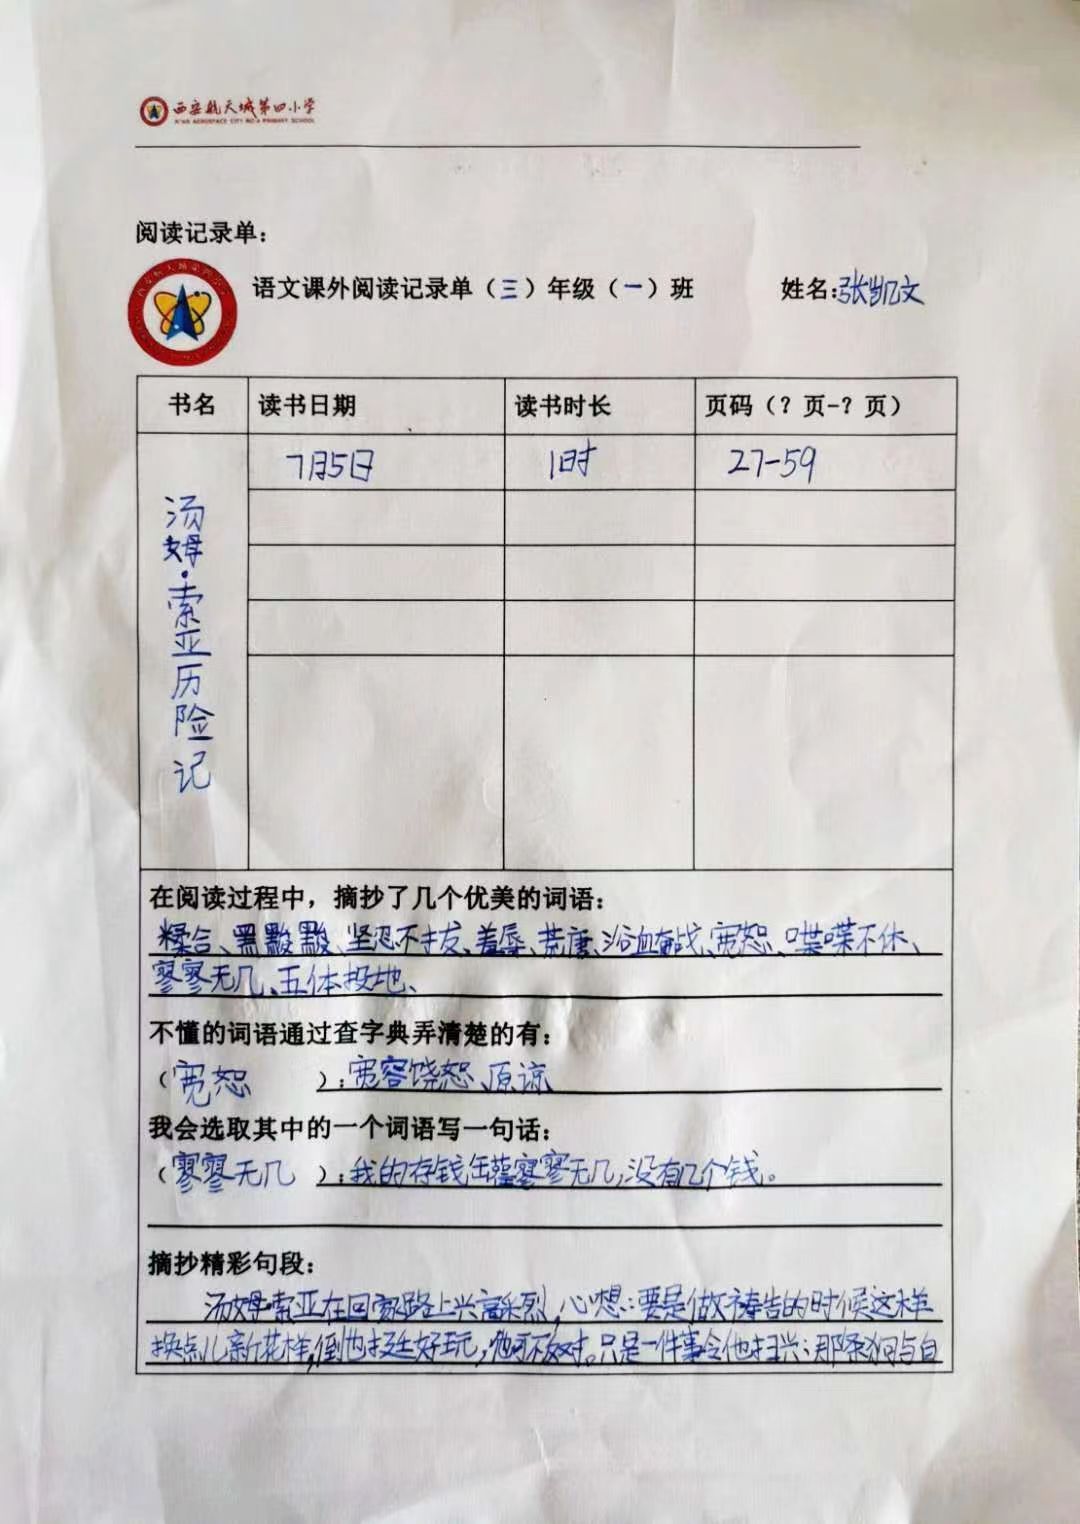 西安航天城第四小学
XI'AN AEROSPACE CITY NO.4 PRIMARY SCHOOL
阅读记录单：
语文课外阅读记录单（三）年级（一）班 姓名:张凯文
书名 读书日期 读书时长 页码（？页-？页）
7月5日 1时 27-59
汤姆·索亚历险记
在阅读过程中，摘抄了几个优美的词语：
糅合、黑黢黢、坚忍不拔、羞辱、荒唐、浴血奋战、宽恕、喋喋不休、
寥寥无几、五体投地、
不懂的词语通过查字典弄清楚的有：
（宽恕）：宽容饶恕、原谅
我会选取其中的一个词语写一句话：
（寥寥无几）：我的存钱罐寥寥无几，没有几个钱。
摘抄精彩句段：
汤姆·索亚在回家路上兴高采烈，心想：要是做祷告的时候这样
换点儿新花样，倒也挺好玩，他可不反对。只是一件事令他扫兴：那条狗与自